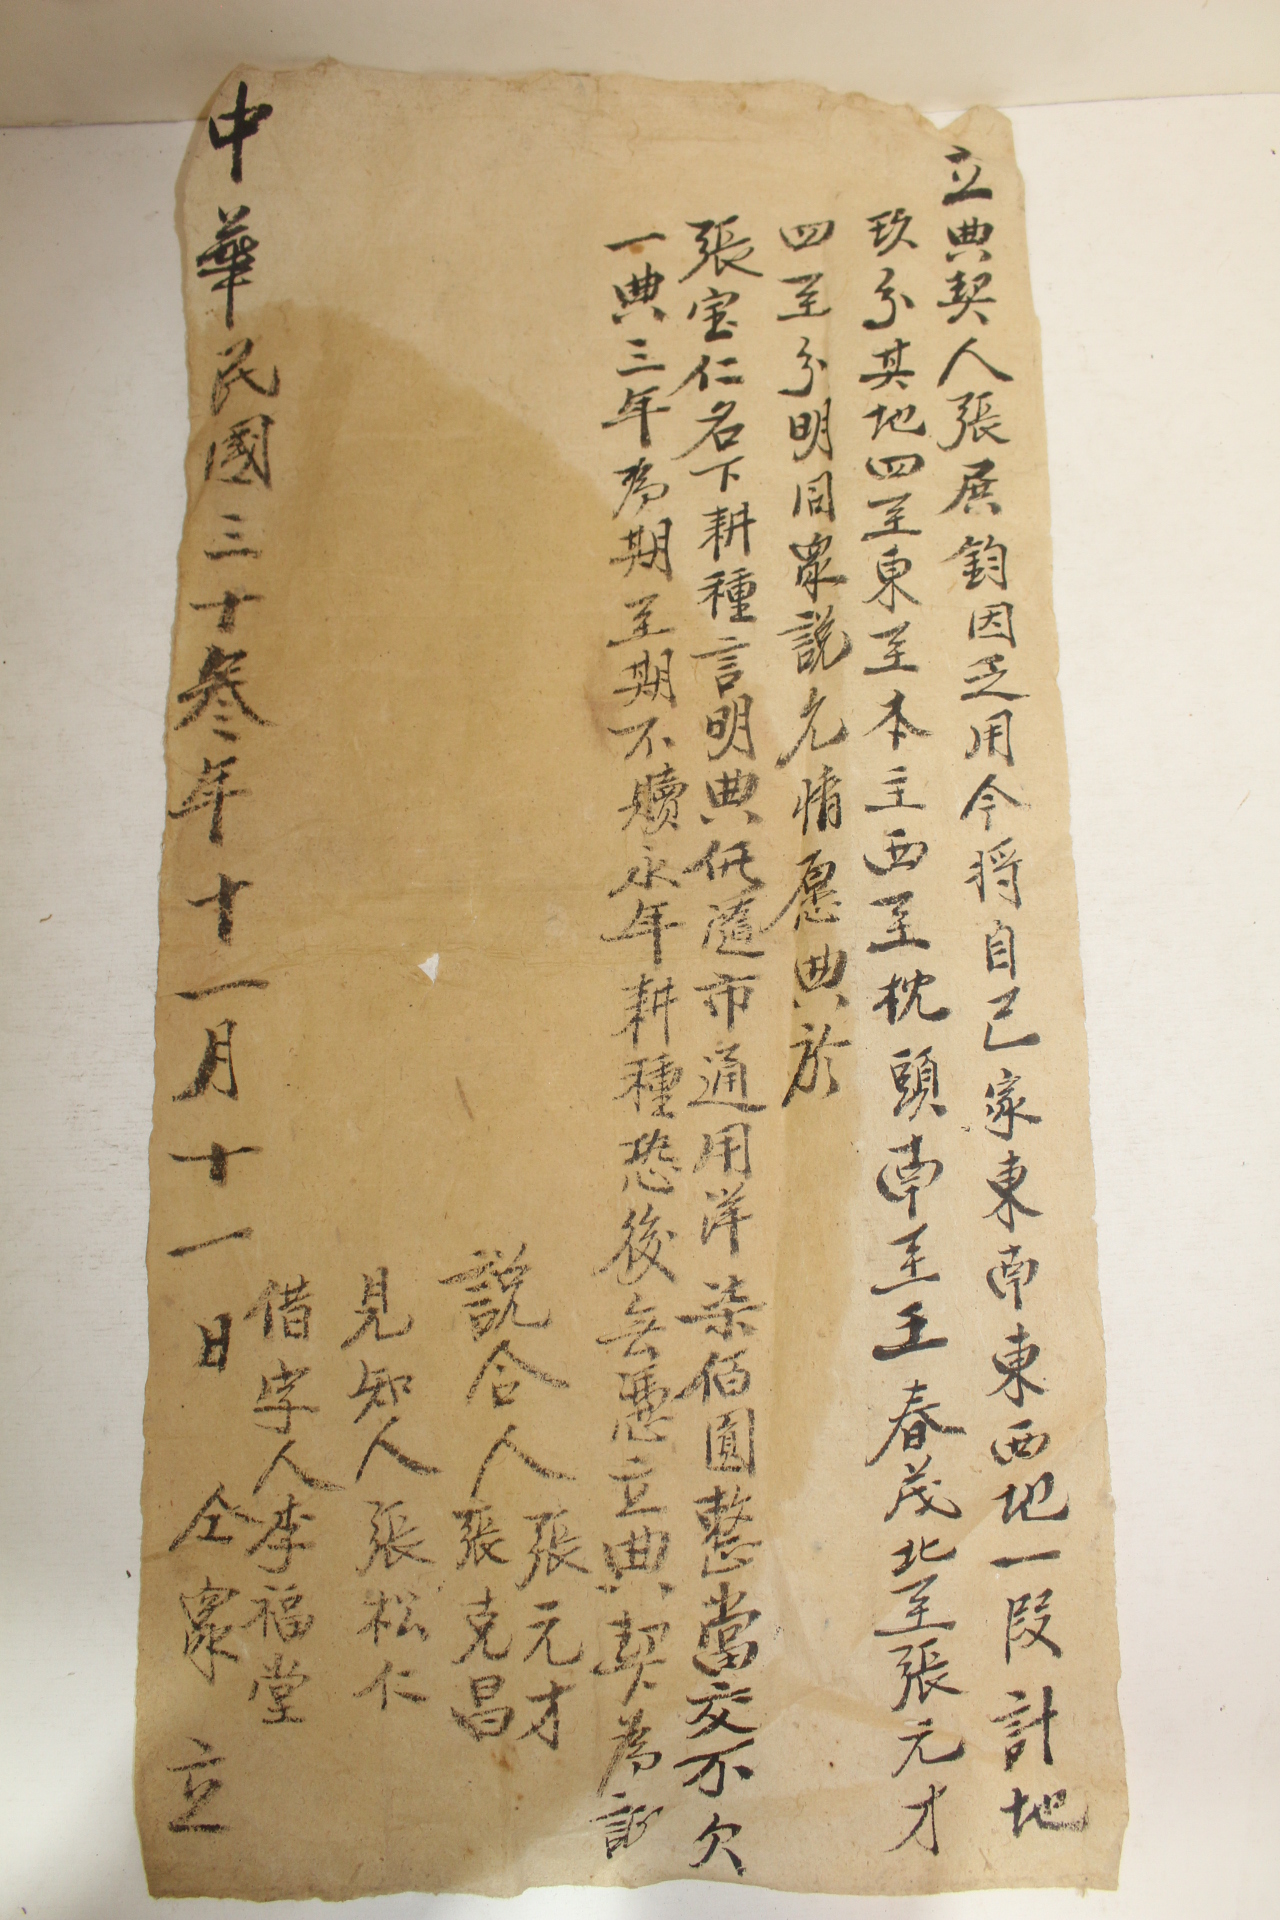 立典契人張展鈞因乏用今将自己家東南東西地一段計地
玖分其地四至東至本主西至枕頭南至王春茂北至張元才
四至分明同眾說允情愿典於
張宝仁名下耕種言明典仛隨市通用洋柒佰圓整當交不欠
一典三年為期至期不贖永年耕種恐後無憑立典契為証
說合人張元才
張克昌
見知人張松仁
借字人李福堂
中華民國三十叁年十一月十一日仝眾立